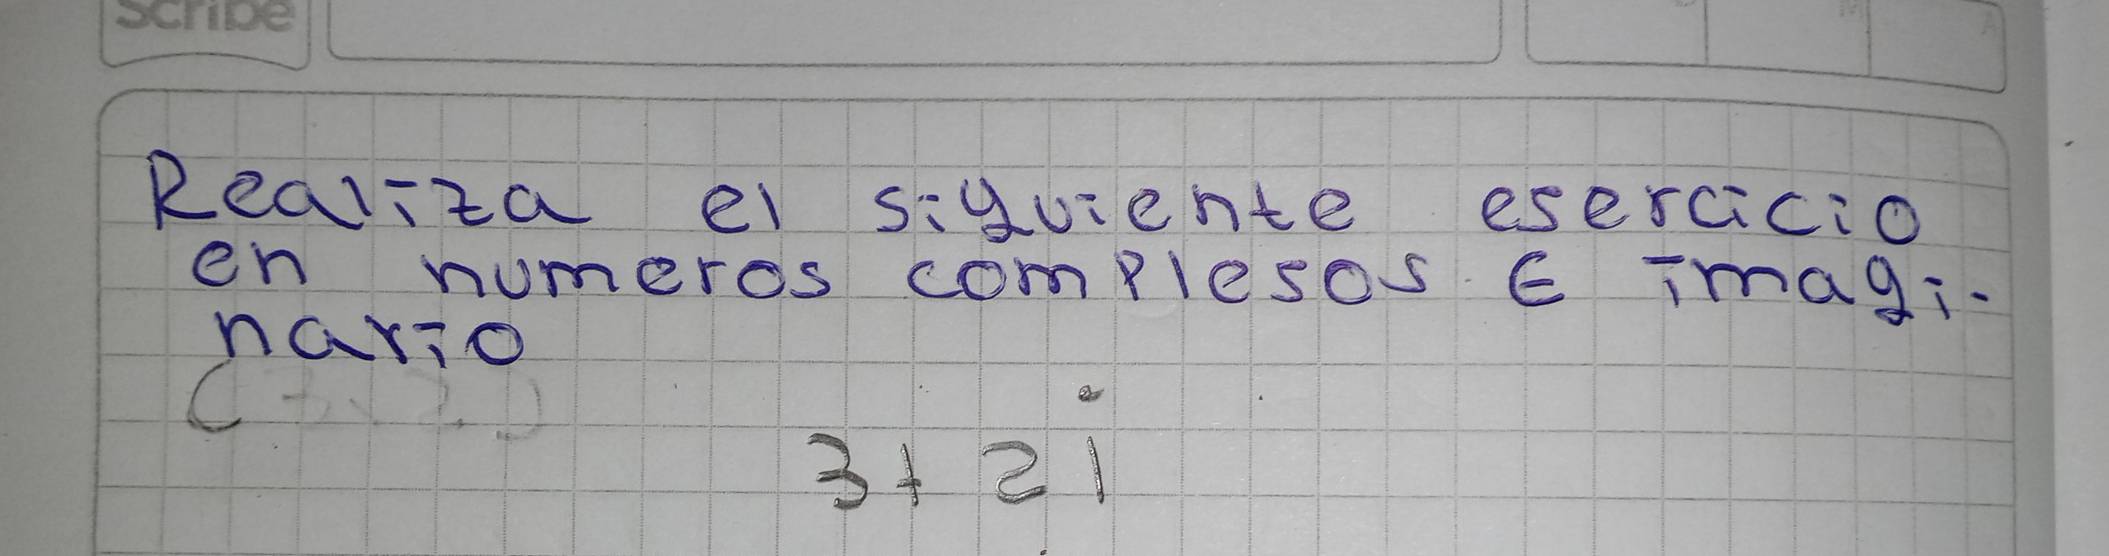 Scribe
Realiza el siguiente esercicio
en numeros complesos E imagi-
nario
3+2i